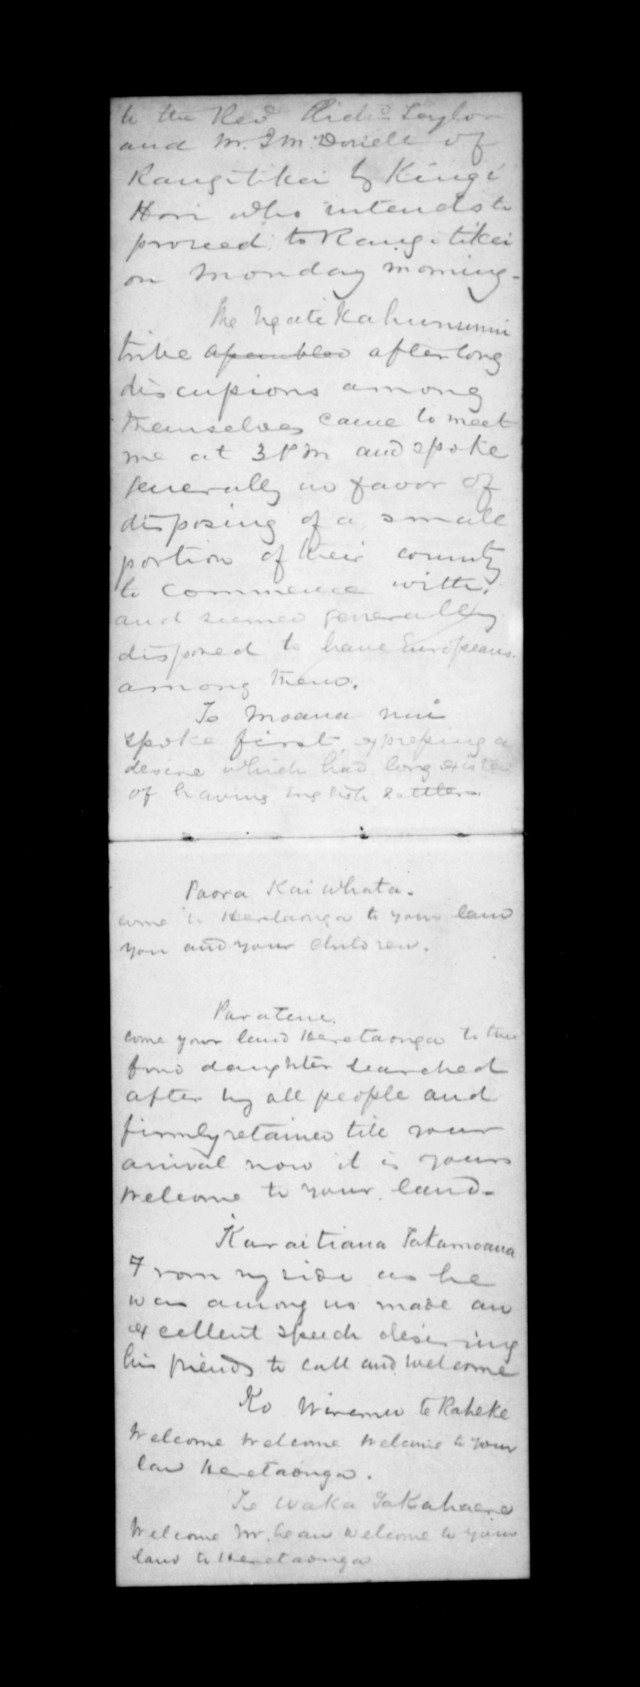 to the Revd Richd Taylor
and Mr. J M. Donell of
Rangitikei by Kingi
Hori who intends to
proceed to Rangitikei
on Monday morning.
The Ngatikahununu
tribe assembled after long
discussions among
themselves came to meet
me at 3 PM and spoke
generally in favor of
disposing of a small
portion of their country
to commence with.
and seemed generally
disposed to have Europeans
among them.
Te Moana nui
spoke first expressing a
desire which had long existed
of having english settlers.
Paora Kaiwhata.
come to Heretaonga to your land
you and your children.
Paratene.
come your land Heretaonga to this
fond daughter searched
after by all people and
firmly retained till your
arrival now it is yours
Welcome to your land.
Karaitiana Takamoana
From my side as he
was among us made an
excellent speech desiring
his friends to call and welcome
Ko Wiremu te Raheke
Welcome Welcome Welcome to your
land Heretaonga.
Te Waka Takahaere
Welcome Mr. Lean Welcome to your
land to Heretaonga